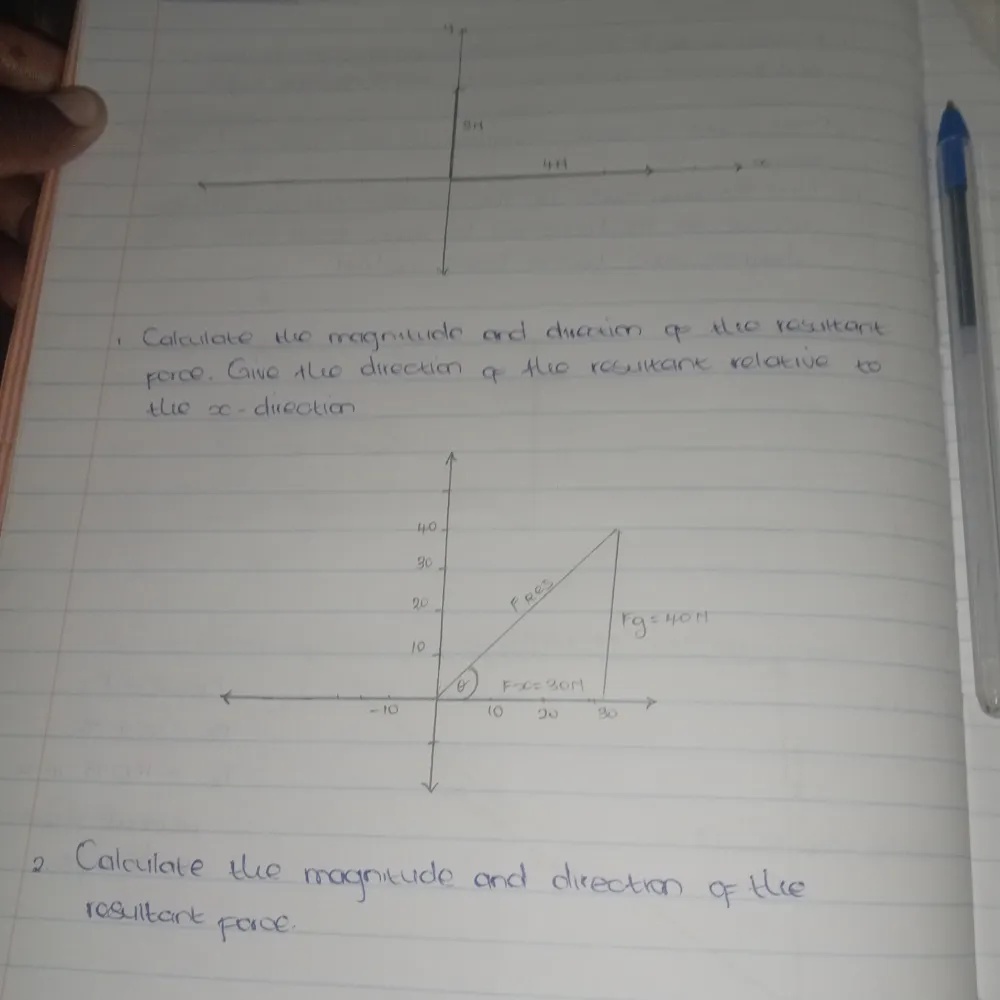 y
3N
4N x
1. Calculate the magnitude and direction of the resultant
force. Give the direction of the resultant relative to
the x-direction
40
30
20
10
FRes
Fy = 40N
θ
Fx = 30N
-10 10 20 30
2. Calculate the magnitude and direction of the
resultant force.